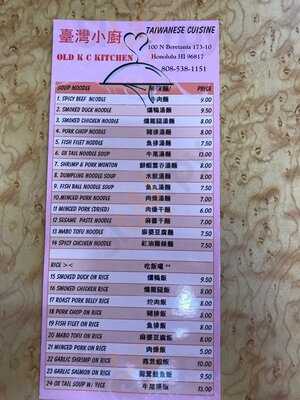 臺灣小廚
TAIWANESE CUISINE
OLD K C KITCHEN
100 N Beretania 173-10
Honolulu HI 96817
808-538-1151
SOUP NOODLE PRICE
1. SPICY BEEF NOODLE 9.00
2. SMOKED DUCK NOODLE 9.50
3. SMOKED CHICKEN NOODLE 9.00
4. PORK CHOP NOODLE 8.00
5. FISH FILET NOODLE 7.50
6. OX TAIL NOODLE SOUP 牛尾湯麵 13.00
7. SHRIMP & PORK WONTON 7.50
8. DUMPLING NOODLE SOUP 水餃湯麵 7.50
9. FISH BALL NOODLE SOUP 魚丸湯麵 7.50
10. MINCED PORK NOODLE 7.50
11 MINCED PORK (DRIED) 6.00
12 SESAME PASTE NOODLE 7.00
13 MABO TOFU NOODLE 麻婆豆腐麵 7.50
14 SPICY CHICKEN NOODLE 7.50
RICE >< 吃飯囉
15 SMOKED DUCK ON RICE 9.50
16 SMOKED CHICKEN RICE 9.00
17 ROAST PORK BELLY RICE 9.00
18 PORK CHOP ON RICE 8.00
19 FISH FILET ON RICE 8.00
20 MABO TOFU ON RICE 麻婆豆腐飯 8.00
21 MINCED PORK ON RICE 5.00
22 GARLIC SHRIMP ON RICE 10.00
23 GARLIC SALMON ON RICE 9.50
24 OX TAIL SOUP W/ RICE 13.00